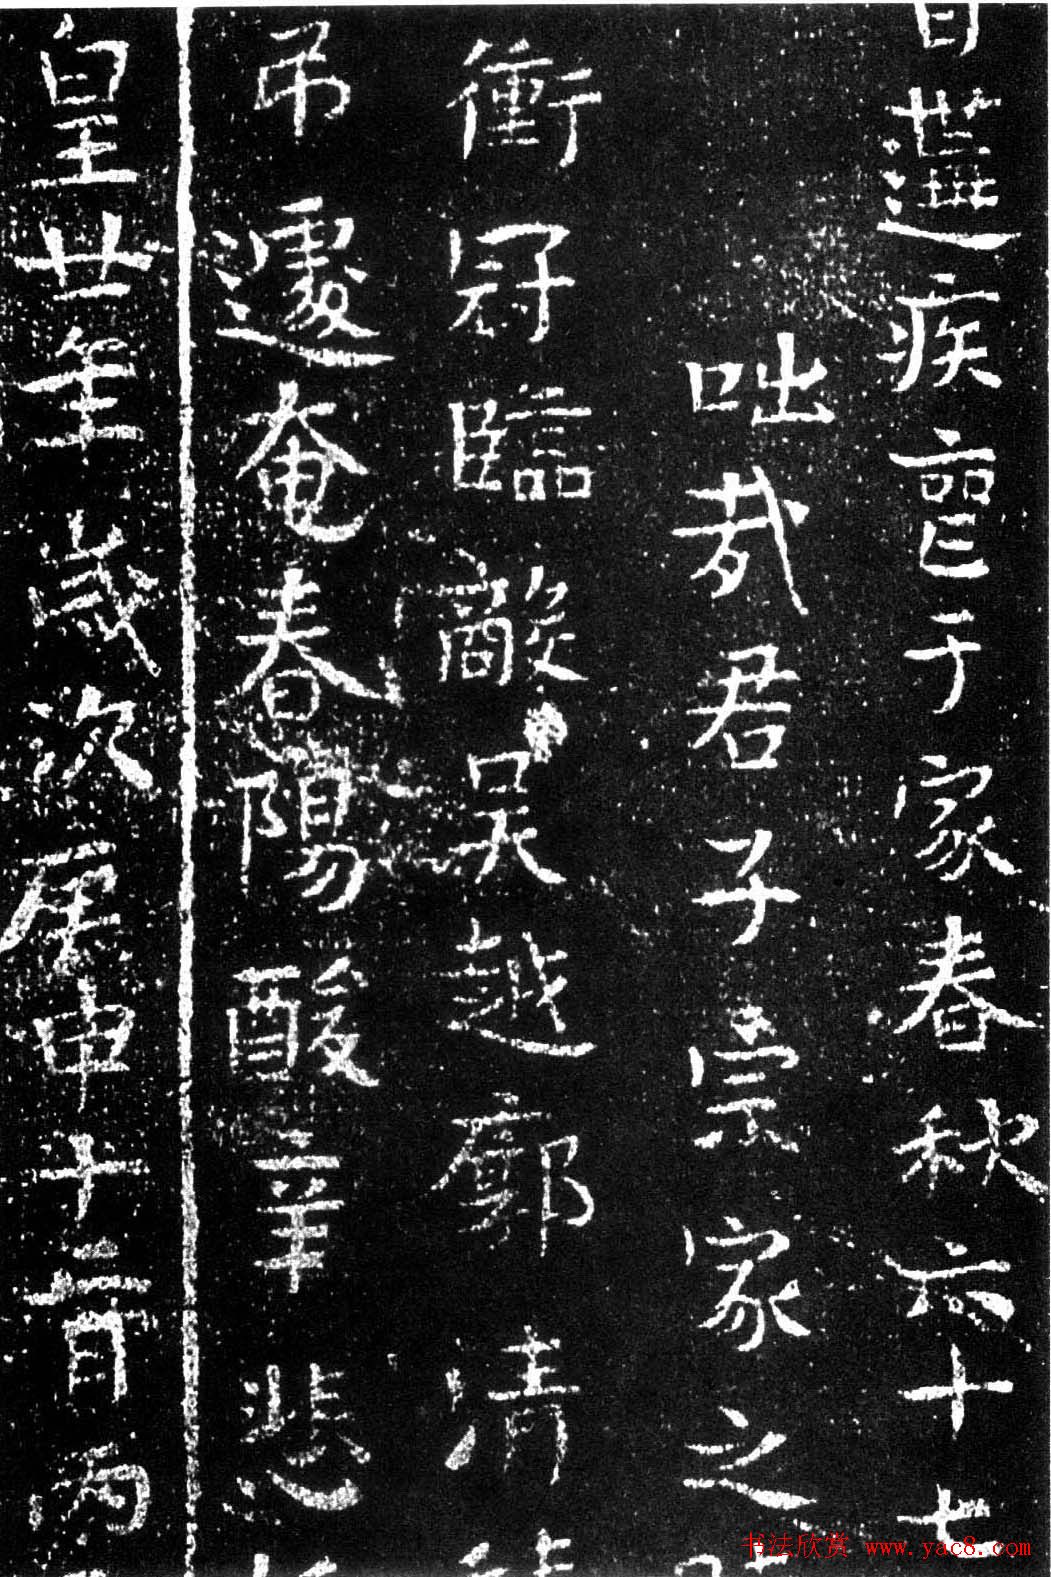 遘疾喪于家春秋六十七
咄哉君子宗家之
衝冠臨敵吴越廓清
吊遽奄春陽酸辛悲
皇廿年歲次庚申十二月丙
书法欣赏 www.yac8.com